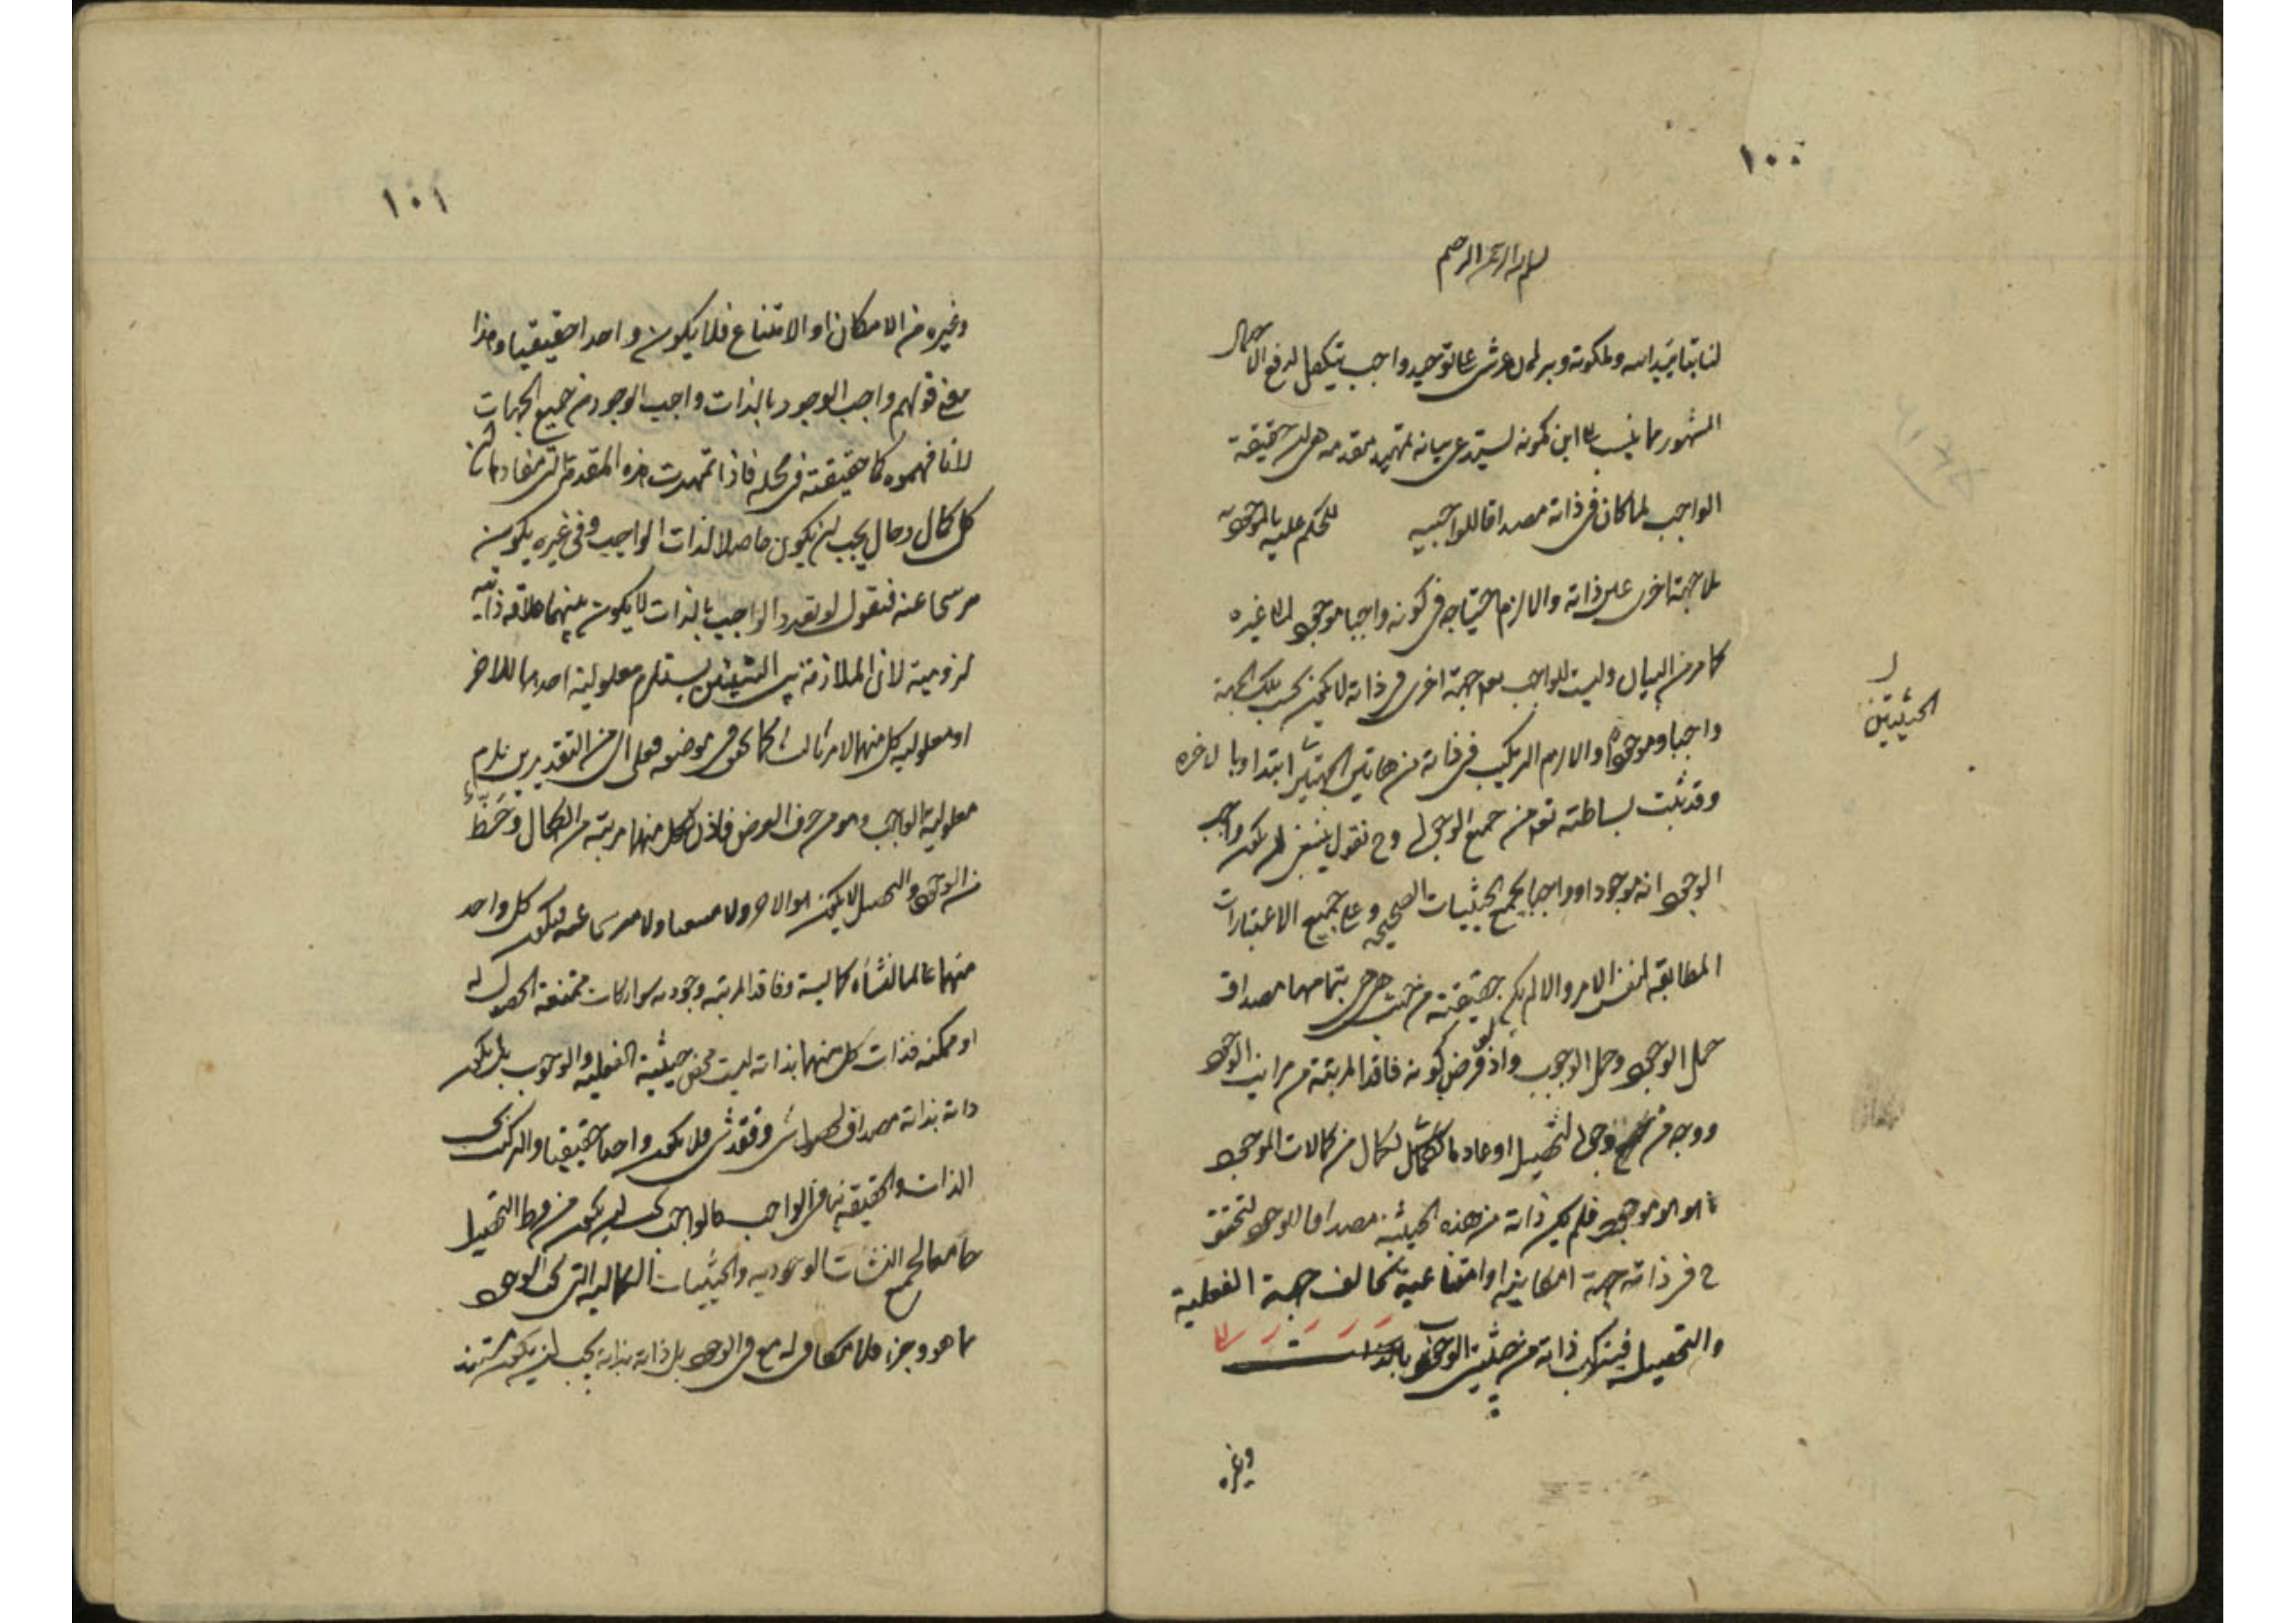 ١٠٠
بسم الله الرحمن الرحيم
لنا بتأييد الله وملكوته وبرهان عرشي على توحيد واجب يتكفل لدفع الاحتمال
المشهور مما ينسب الى ابن كمونه يستدعى بيانه تمهيد مقدمه هى ان حقيقة
الواجب لما كان فى ذاته مصداقا للواجبيه للحكم عليه بالموجوديه
بلا جهة اخرى على ذاته والا لزم احتياجه فى كونه واجبا موجودا الى غيره
كما مر من البيان وليست للواجب بعد جهة اخرى فى ذاته لا يكون بحسب تلك الجهة
واجبا وموجودا والا لزم التركيب فى ذاته من هاتين الجهتين ابتداء وبالاخره
الحيثيتين
وقد ثبت بساطته تعالى من جميع الوجوه وح نقول ينبغى ان يكون واجب
الوجود انه موجودا وواجبا بجميع الحيثيات الصحيحه وعلى جميع الاعتبارات
المطابقه لنفس الامر والا لم يكن حقيقته من حيث هى هى بتمامها مصداق
حمل الوجود وحمل الوجوب واذ لو فرض كونه فاقدا لمرتبة من مراتب الوجود
ووجه من وجوه التحصيل او عادما لكمال من كمالات الموجود
بما هو موجود فلم يكن ذاته من هذه الحيثية مصداقا للوجود لتحقق
ح فى ذاته جهة امكانية او امتناعية تخالف جهة الفعلية
والتحصيل فيتركب ذاته من حيثيتى الوجوب بالذات
وغيره
١٠١
وغيره من الامكان او الامتناع فلا يكون واحدا حقيقيا وهذا
معنى قولهم واجب الوجود بالذات واجب الوجود من جميع الجهات
لا ما فهموه كما حققته فى محله فاذا تمهدت هذه المقدمة التى مفادها ان
كل كمال وجمال يجب ان يكون حاصلا لذات الواجب وفى غيره يكون
مرشحا عنه فنقول لو تعدد الواجب بالذات لا يكون بينهما علاقة ذاتيه
لزومية لان الملازمة بين الشيئين يستلزم معلولية احدهما للاخر
او معلوليه كل منهما لامر ثالث كما تحقق فى موضعه فعلى اى من التقديرين يلزم
معلولية الواجب وهو خرق الفرض فاذن لكل منهما مرتبة من الكمال وحظ
من الوجود والتحصيل لا يكون هو للاخر ولا منبعثا ولا مترشحا عنه فيكون كل واحد
منهما عادما لنشأه كمالية وفاقدا لمرتبه وجوديه سواء كانت ممتنعة الحصول له
او ممكنه فذات كل منهما بذاته ليست محض حيثية الفعليه والوجوب بل يكون
ذاته بذاته مصداقا لحصول شئ وفقد شئ فلا يكون واحدا حقيقيا والتركيب بحسب
الذات والحقيقة ينافى الواجب فالواجب يجب ان يكون من فرط التحصيل
جامعا لجميع النشآت الوجوديه والحيثيات الكماليه التى بحسب الوجود
بما هو وجود فلا مكافى له فى الوجود بل ذاته بذاته يجب ان يكون مستند